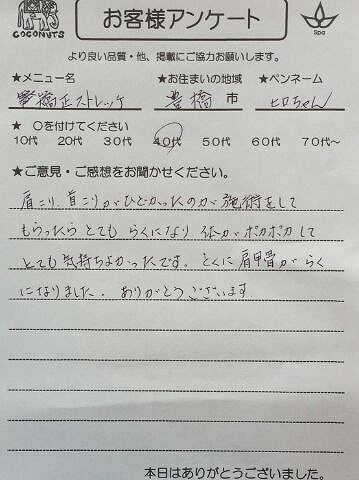 COCONUTS
お客様アンケート
Spa
より良い品質・他、掲載にご協力お願いします。
★メニュー名 ★お住まいの地域 ★ペンネーム
矯正ストレッチ 豊橋 市 ヒロちゃん
★ ○を付けてください
10代 20代 30代 40代 50代 60代 70代～
★ご意見・ご感想をお聞かせください。
肩こり、首こりがひどかったのが施術をして
もらったらとてもらくになり、体がポカポカして
とても気持ちよかったです。とくに肩甲骨がらく
になりました。ありがとうございます
本日はありがとうございました。